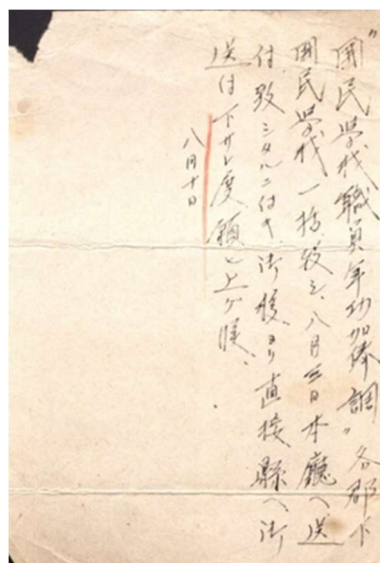 "国民学校職員年功加俸調"各郡下
国民学校一括致シ、八月三日本廳ヘ送
付致シタルニ付キ御様ヨリ直接縣ヘ御
送付下サレ度願ヒ上ゲ候、
八月十日